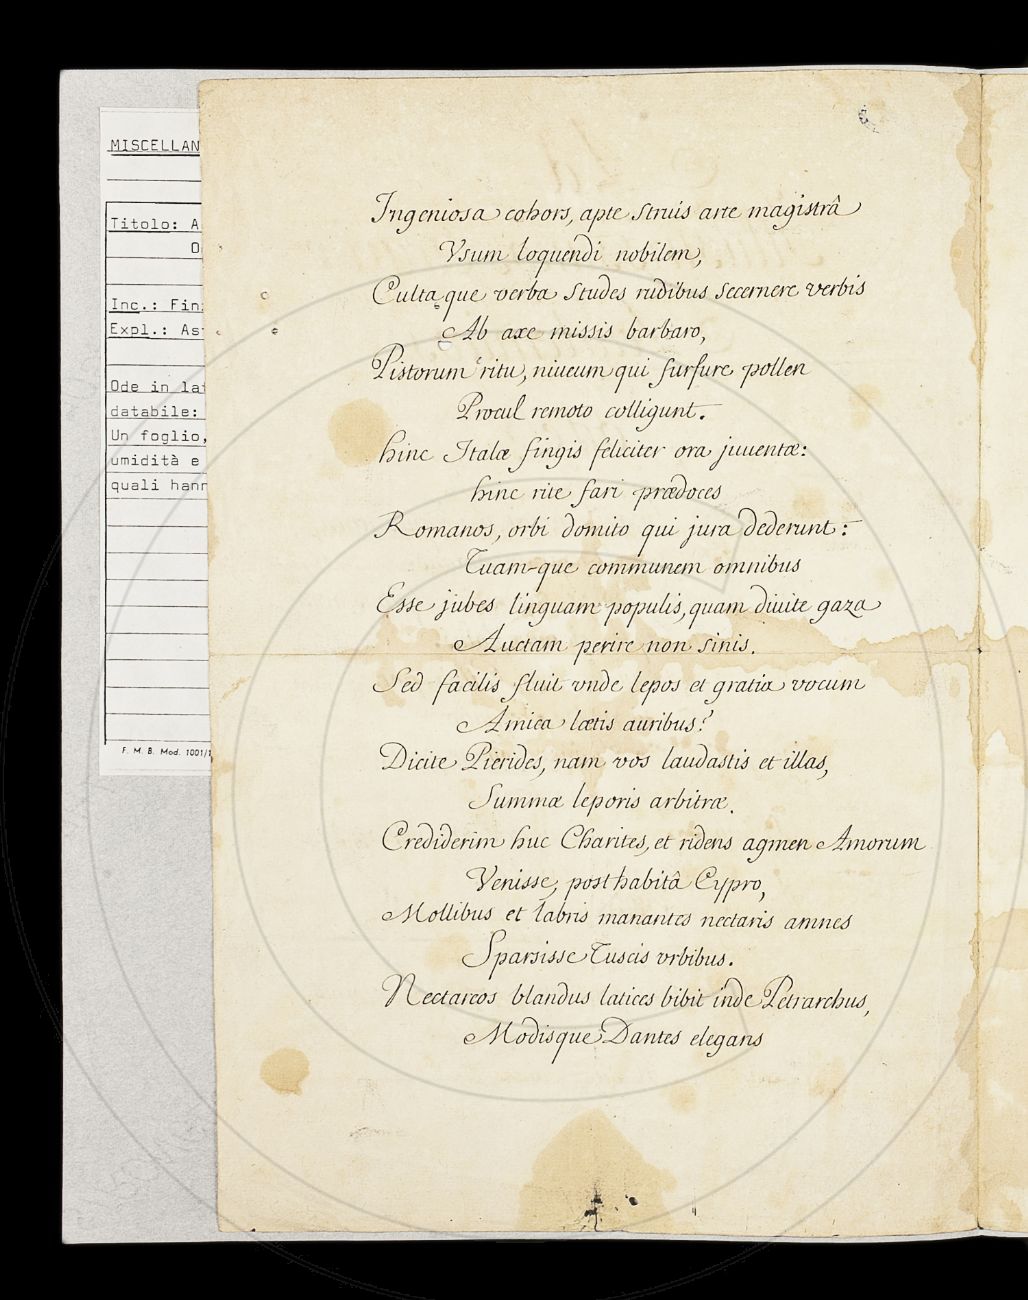 MISCELLAN
Titolo: A
O
Inc.: Fin
Expl.: As
Ode in la
databile:
Un foglio,
umidità e
quali hann
F. M. B. Mod. 1001/1
Ingeniosa cohors, apte struis arte magistrâ
Vsum loquendi nobilem,
Cultaque verba studes rudibus secernere verbis
Ab axe missis barbaro,
Pistorum ritu, niueum qui furfure pollen
Procul remoto colligunt.
hinc Italæ fingis feliciter ora juuentæ:
hinc rite fari prædoces
Romanos, orbi domito qui jura dederunt:
Tuam-que communem omnibus
Esse jubes linguam populis, quam diuite gaza
Auctam perire non sinis.
Sed facilis fluit vnde lepos et gratia vocum
Amica lætis auribus?
Dicite Pierides, nam vos laudastis et illas,
Summæ leporis arbitræ.
Crediderim huc Charites, et ridens agmen Amorum
Venisse, posthabitâ Cypro,
Mollibus et labris manantes nectaris amnes
Sparsisse Tuscis vrbibus.
Nectareos blandus latices bibit inde Petrarchus,
Modisque Dantes elegans